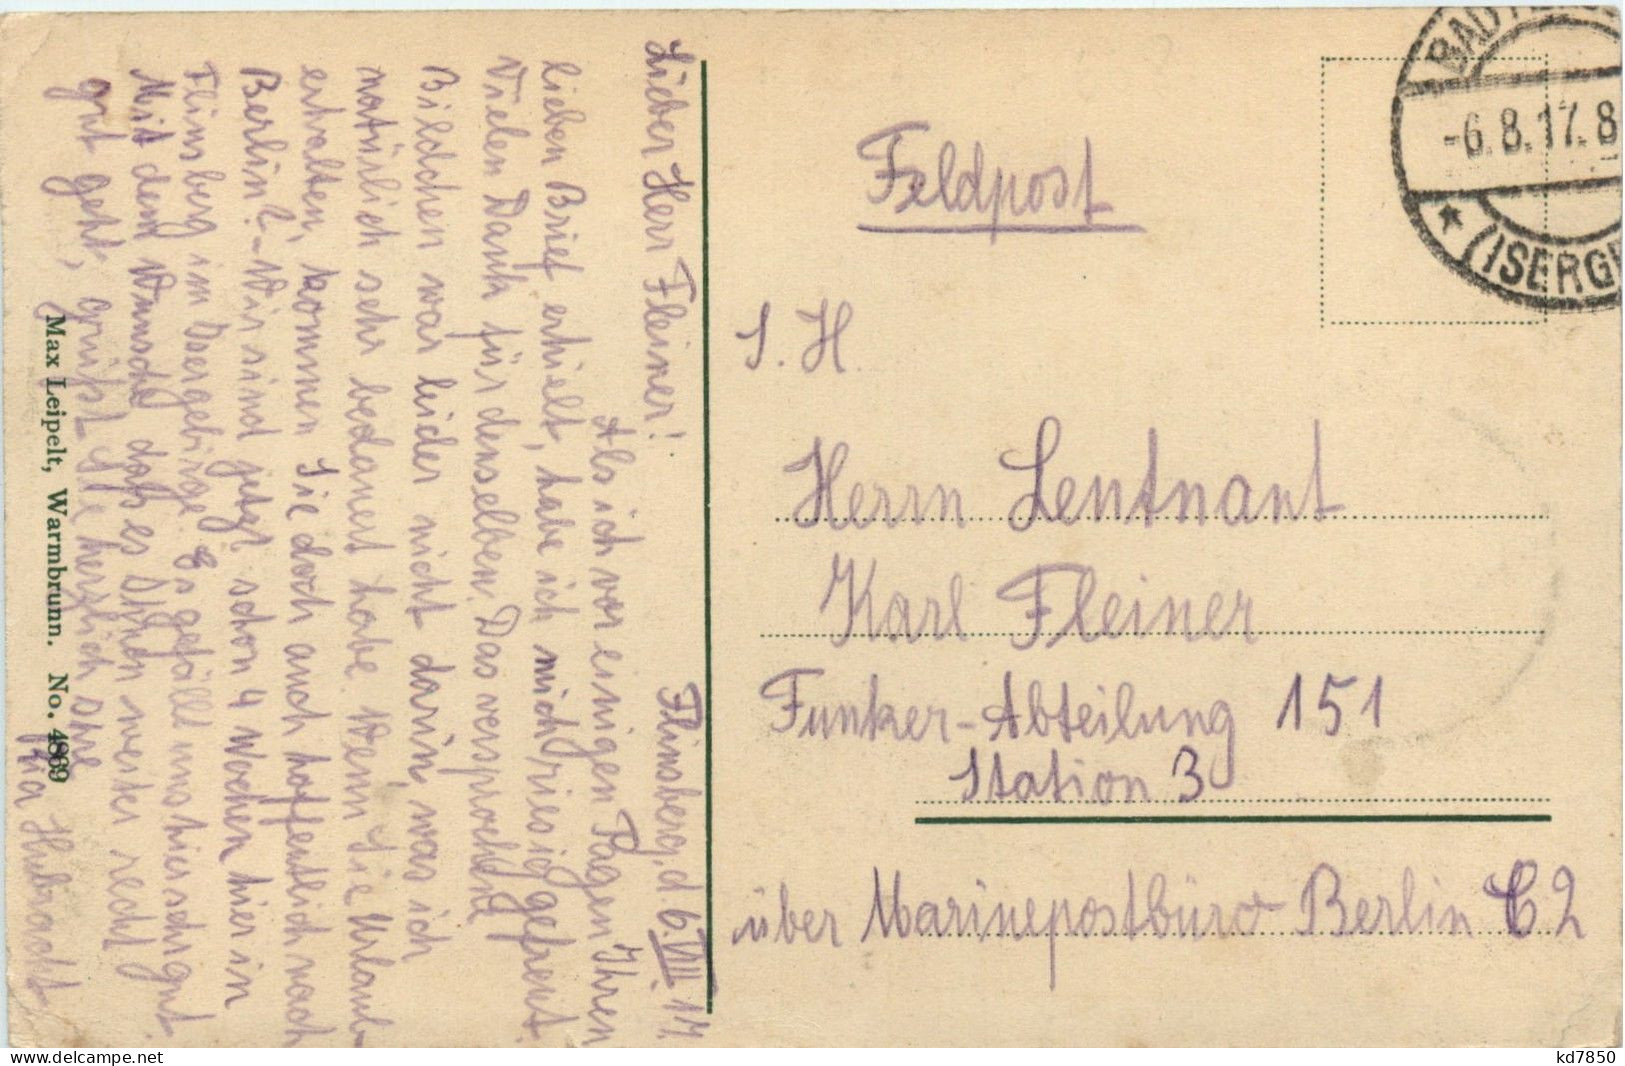 Flinsberg, d. 6. VIII. 17.
Lieber Herr Fleiner!
Als ich vor einigen Tagen Ihren
lieben Brief erhielt, habe ich mich riesig gefreut.
Vielen Dank für denselben. Das versprochene
Bildchen war leider nicht darin, was ich
natürlich sehr bedauert habe. Wenn Sie Urlaub
erhalten, kommen Sie doch auch hoffentlich nach
Berlin? – Wir sind jetzt schon 4 Wochen hier in
Flinsberg im Isergebirge. Es gefällt uns hier sehr gut.
Mit dem Wunsche daß es Ihnen weiter recht
gut geht, grüßt Sie herzlich Ihre
Pia Hubracht
Max Leipelt, Warmbrunn. No. 4869
BAD
-6.8.17.8
(ISERGE
Feldpost
S. H.
Herrn Leutnant
Karl Fleiner
Funker-Abteilung 151
Station 3
über Marinepostbüro Berlin C 2
kd7850